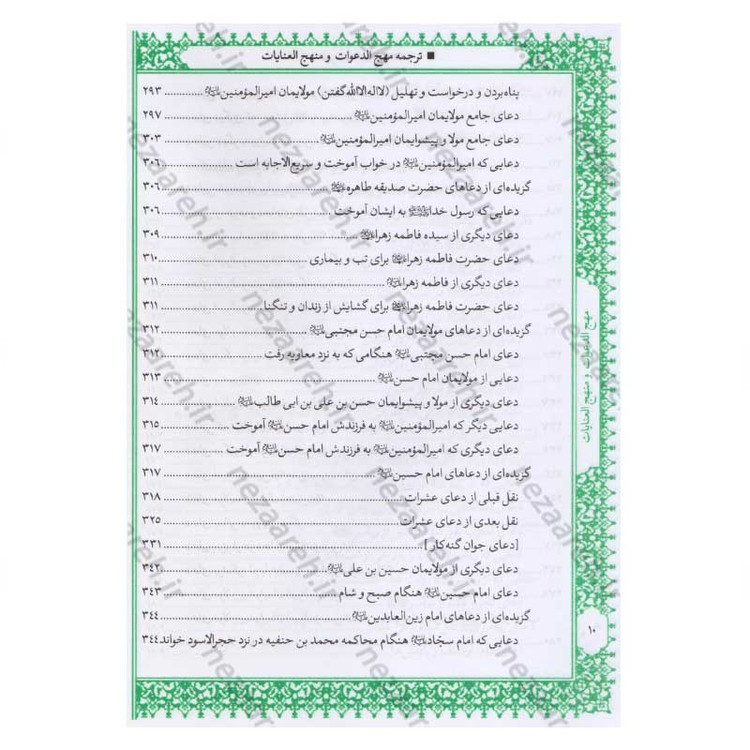 ■ ترجمه مهج الدعوات و منهج العنایات
پناه‌بردن و درخواست و تهلیل (لااله‌الاالله‌گفتن) مولایمان امیرالمؤمنین ............ ۲۹۳
دعای جامع مولایمان امیرالمؤمنین ............ ۲۹۷
دعای جامع مولا و پیشوایمان امیرالمؤمنین ............ ۳۰۳
دعایی که امیرالمؤمنین در خواب آموخت و سریع‌الاجابه است ............ ۳۰۶
گزیده‌ای از دعاهای حضرت صدیقه طاهره ............ ۳۰۶
دعایی که رسول خدا به ایشان آموخت ............ ۳۰۶
دعای دیگری از سیده فاطمه زهرا ............ ۳۰۹
دعای حضرت فاطمه زهرا برای تب و بیماری ............ ۳۱۰
دعای دیگری از فاطمه زهرا ............ ۳۱۱
دعای حضرت فاطمه زهرا برای گشایش از زندان و تنگنا ............ ۳۱۱
گزیده‌ای از دعاهای مولایمان امام حسن مجتبی ............ ۳۱۲
دعای امام حسن مجتبی هنگامی که به نزد معاویه رفت ............ ۳۱۲
دعایی از مولایمان امام حسن ............ ۳۱۳
دعای دیگری از مولا و پیشوایمان حسن بن علی بن ابی طالب ............ ۳۱۴
دعایی دیگر که امیرالمؤمنین به فرزندش امام حسن آموخت ............ ۳۱۵
دعای دیگری که امیرالمؤمنین به فرزندش امام حسن آموخت ............ ۳۱۷
گزیده‌ای از دعاهای امام حسین ............ ۳۱۷
نقل قبلی از دعای عشرات ............ ۳۱۸
نقل بعدی از دعای عشرات ............ ۳۲۵
[دعای جوان گنه‌کار] ............ ۳۳۱
دعای دیگری از مولایمان حسین بن علی ............ ۳۴۲
دعای امام حسین هنگام صبح و شام ............ ۳۴۳
گزیده‌ای از دعاهای امام زین‌العابدین ............ ۳۴۴
دعایی که امام سجّاد هنگام محاکمه محمد بن حنفیه در نزد حجرالاسود خواند ۳۴۴
مهج الدعوات و منهج العنایات
۱۰
nezaareh.ir